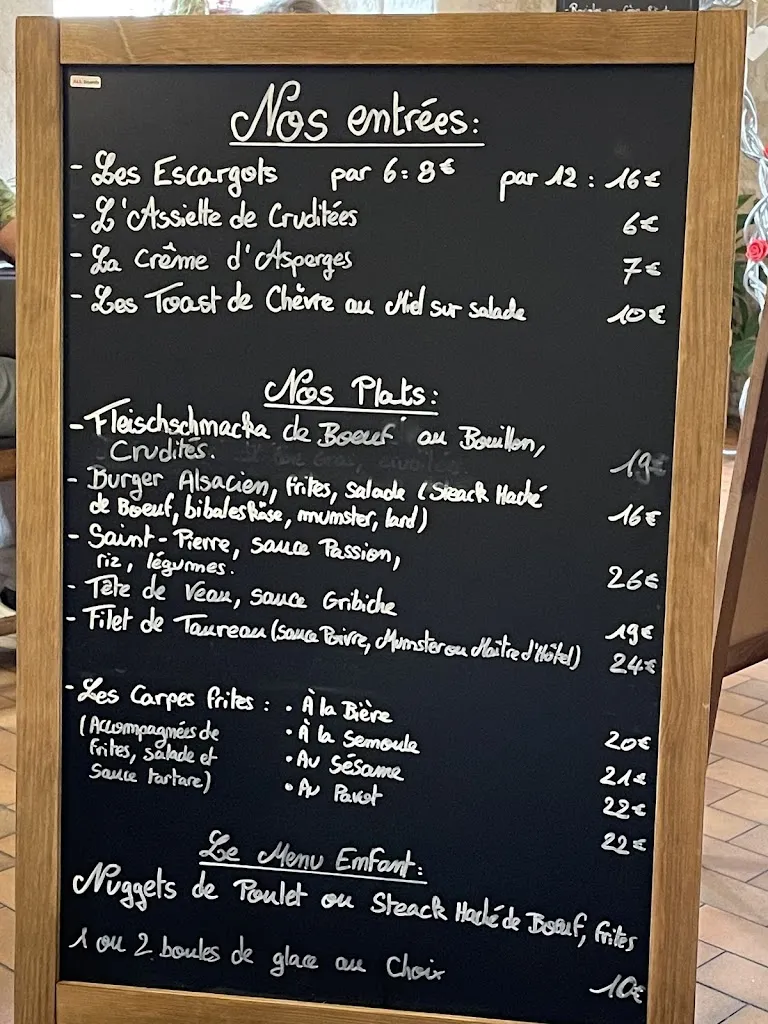 Nos entrées:
- Les Escargots par 6: 8€ par 12 : 16€
- L'Assiette de Cruditées 6€
- La Crême d'Asperges 7€
- Les Toast de Chèvre au Miel sur salade 10€
Nos Plats:
- Fleischschmacka de Boeuf au Bouillon,
Crudités. 19€
- Burger Alsacien, frites, salade (Steack Haché
de Boeuf, bibaleskäse, mumster, lard) 16€
- Saint-Pierre, sauce Passion,
riz, légumes. 26€
- Tête de Veau, sauce Gribiche 19€
- Filet de Taureau (sauce Poivre, Mumster ou Maître d'Hôtel) 24€
- Les Carpes frites : • À la Bière 20€
(Accompagnées de • À la Semoule 21€
frites, salade et • Au Sésame 22€
Sauce tartare) • Au Pavot 22€
Le Menu Enfant:
Nuggets de Poulet ou Steack Haché de Boeuf, frites
1 ou 2 boules de glace au Choix 10€